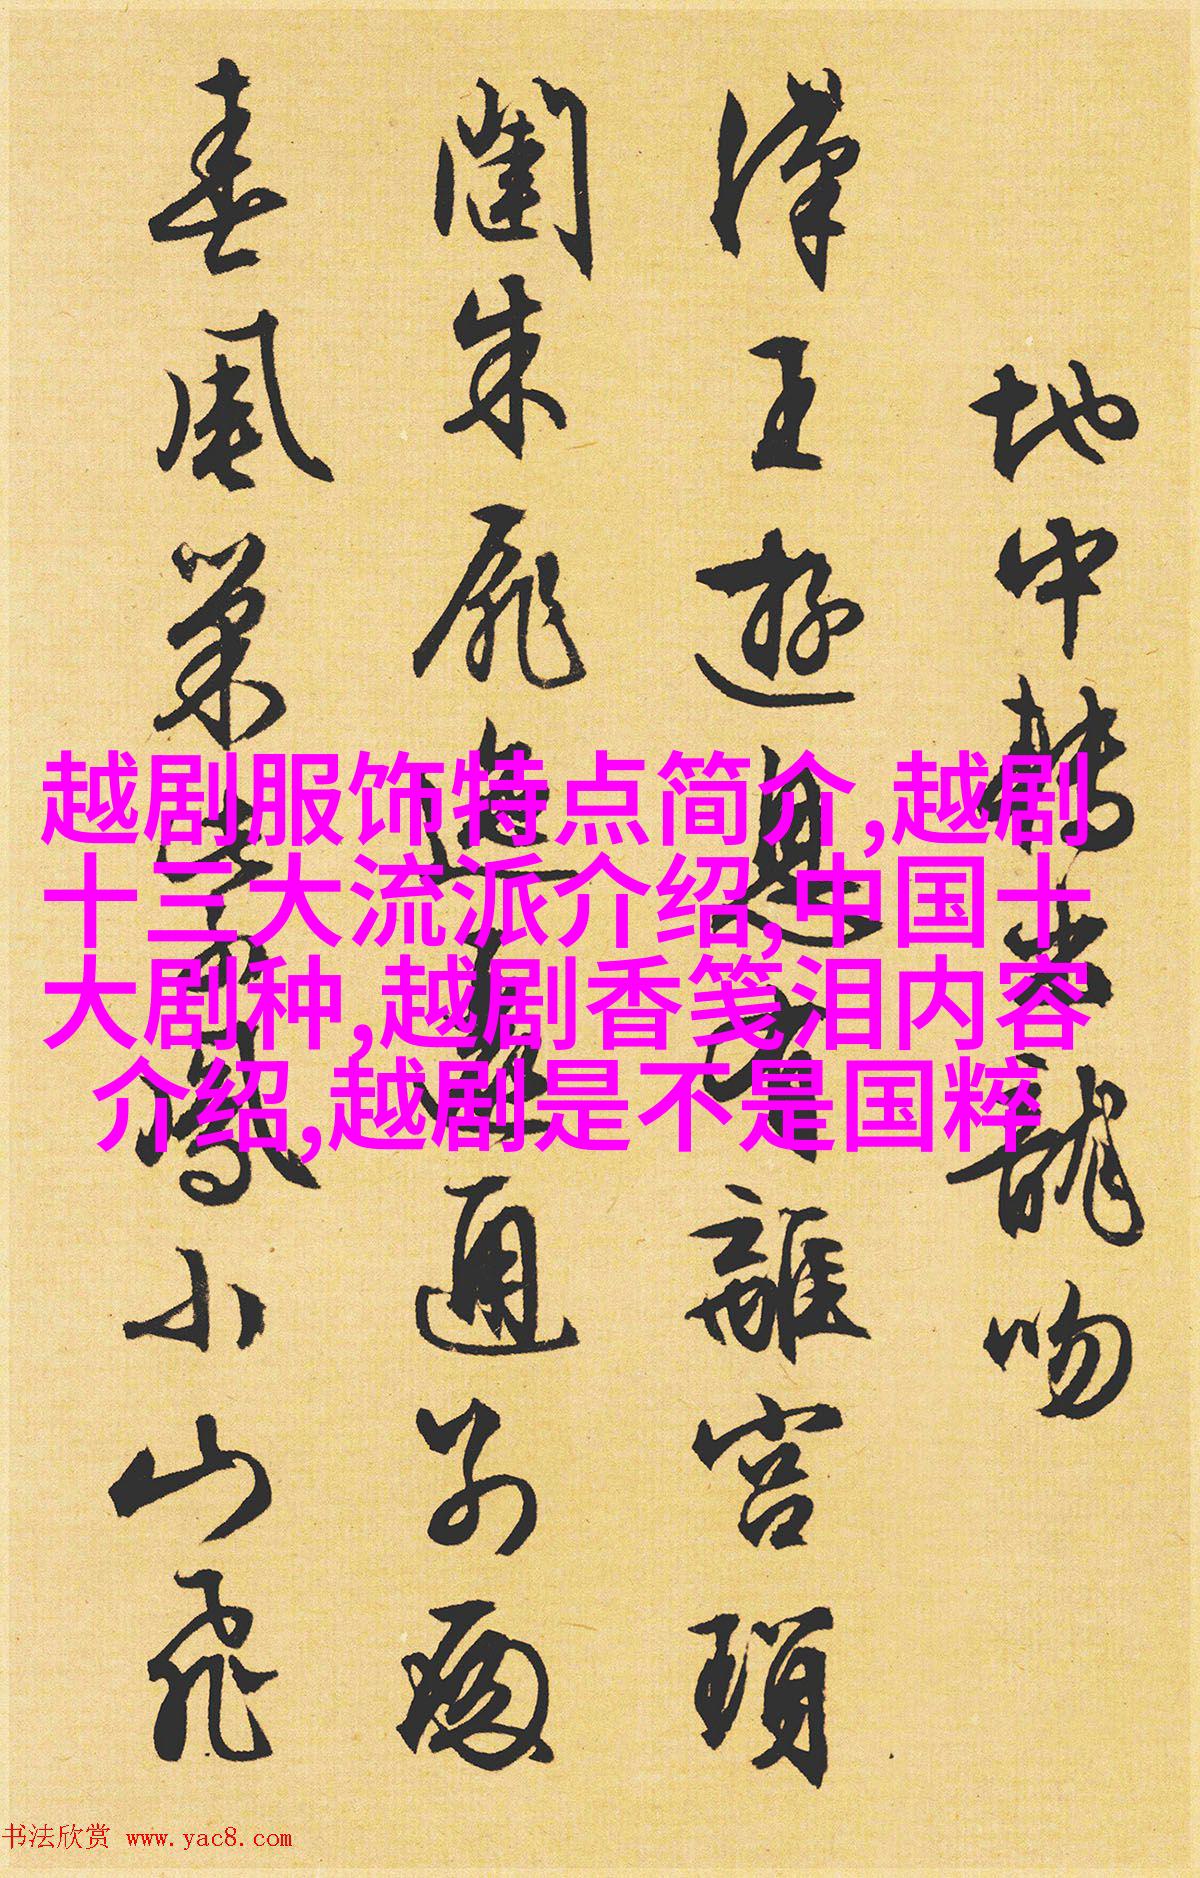 越剧服饰特点简介,越剧
十三大流派介绍,中国十
大剧种,越剧香笺泪内容
介绍,越剧是不是国粹
地中轉龍吻
漢王遊息離宮瑣
闥朱扉迤邐通別殿
春風巢紫鳳小山飛
书法欣赏 www.yac8.com